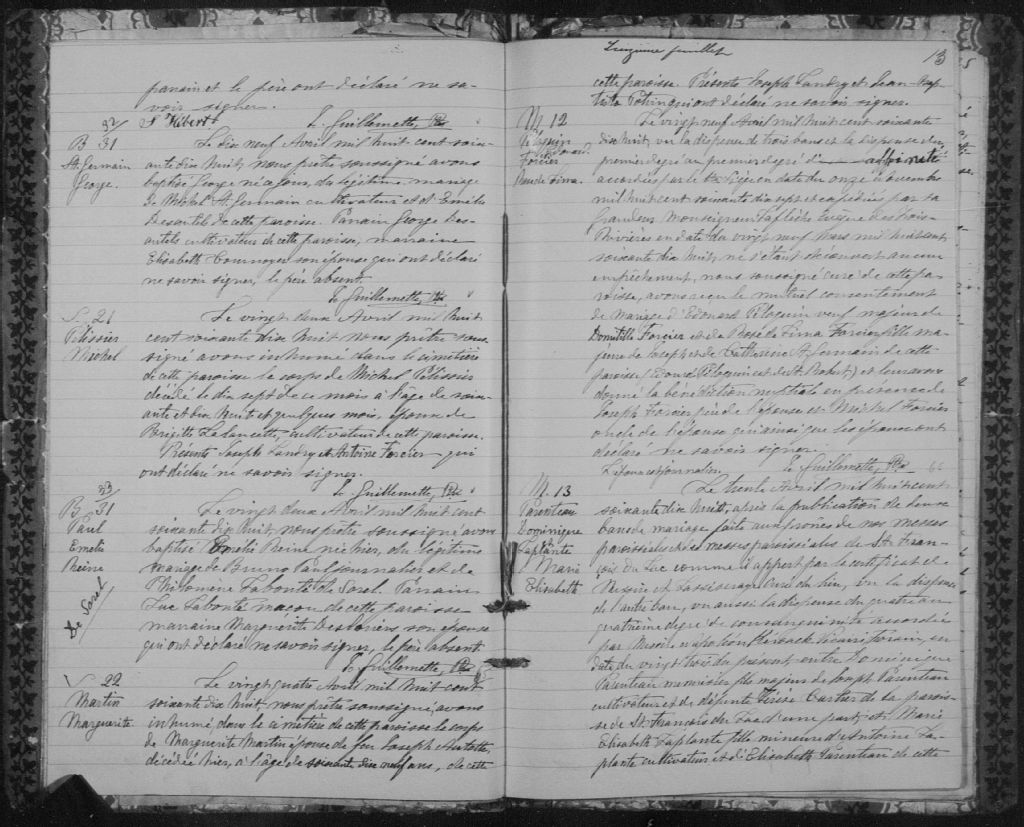 parrain et le père ont déclaré ne sa-
voir signer.
F. Hébert
L. Guillemette, Ptre
B 31
St. Germain
George.
Le dix neuf Avril mil huit cent soix-
ante dix huit, nous prêtre soussigné avons
baptisé George né ce jour, du légitime mariage
de Michel St. Germain cultivateur et d'Emélie
Desautels de cette paroisse. Parrain George Des-
autels cultivateur de cette paroisse, marraine
Elisabeth Cournoyer son épouse qui ont déclaré
ne savoir signer, le père absent.
L. Guillemette, Ptre
S. 21
Pélissier
Michel
Le vingt deux Avril mil huit
cent soixante dix huit nous prêtre sous-
signé avons inhumé dans le cimetière
de cette paroisse le corps de Michel Pélissier
décédé le dix sept de ce mois à l'âge de soix-
ante et dix huit et quelques mois, époux de
Brigitte Lalancette, cultivateur de cette paroisse.
Présents Joseph Landry et Antoine Forcier qui
ont déclaré ne savoir signer.
L. Guillemette, Ptre
33
B 31
Paul
Emélie
Reine
de Sorel
Le vingt deux Avril mil huit cent
soixante dix huit, nous prêtre soussigné avons
baptisé Emélie Reine née hier, du légitime
mariage de Bruno Paul journalier et de
Philomène Labonté de Sorel. Parrain
Luc Labonté maçon de cette paroisse
marraine Marguerite son épouse
qui ont déclaré ne savoir signer, le père absent.
L. Guillemette, Ptre
S. 22
Martin
Marguerite
Le vingt quatre Avril mil huit cent
soixante dix huit nous prêtre soussigné, avons
inhumé, dans le cimetière de cette paroisse le corps
de Marguerite Martin épouse de feu Joseph
décédée hier, à l'âge de soixante dix neuf ans, de cette
Treizième feuillet
13
cette paroisse. Présents Joseph Landry et Jean-Bap-
tiste Potvin qui ont déclaré ne savoir signer.
M. 12
Péloquin
Edouard
Forcier
Rose de Lima.
Le vingt neuf Avril mil huit cent soixante
dix huit, vu la dispense de trois bans et la dispense du
premier degré au premier degré d' affinité
accordées par le St. Siège en date du onze décembre
mil huit cent soixante dix sept et expédiées par sa
Grandeur Monseigneur Laflèche Evêque des trois-
Rivières en date du vingt neuf Mars mil huit cent
soixante dix huit, ne s'étant découvert aucun
empêchement, nous soussigné curé de cette pa-
roisse, avons reçu le mutuel consentement
de mariage d'Edouard Péloquin veuf majeur de
Domitille Forcier et de Rose de Lima Forcier fille ma-
jeure de Joseph et de Catherine St. Germain de cette
paroisse, (Edouard Péloquin est de St. Robert) et leur avons
donné la bénédiction nuptiale en présence de
Joseph Forcier père de l'épouse et Michel Forcier
oncle de l'épouse qui ainsi que les époux ont
déclaré ne savoir signer.
L'époux est journalier. L. Guillemette, Ptre
M. 13
Parenteau
Dominique
et
Laplante
Marie
Elisabeth
Le trente Avril mil huit cent
soixante dix huit, après la publication de deux
bans de mariage faite aux prônes de nos messes
paroissiales et des messes paroissiales de St. Fran-
çois du Lac comme il appert par le certificat de
Messire curé du lieu, vu la dispense
de l'autre ban, vu aussi la dispense du quatre au
quatrième degré de consanguinité accordée
par vicaire forain, en
date du vingt trois du présent, entre Dominique
Parenteau menuisier fils majeur de Joseph Parenteau
cultivateur et de défunte Thérèse Cartier de la parois-
se de St. François du Lac d'une part, et Marie
Elisabeth Laplante fille mineure d'Antoine La-
plante cultivateur et d'Elisabeth Parenteau de cette